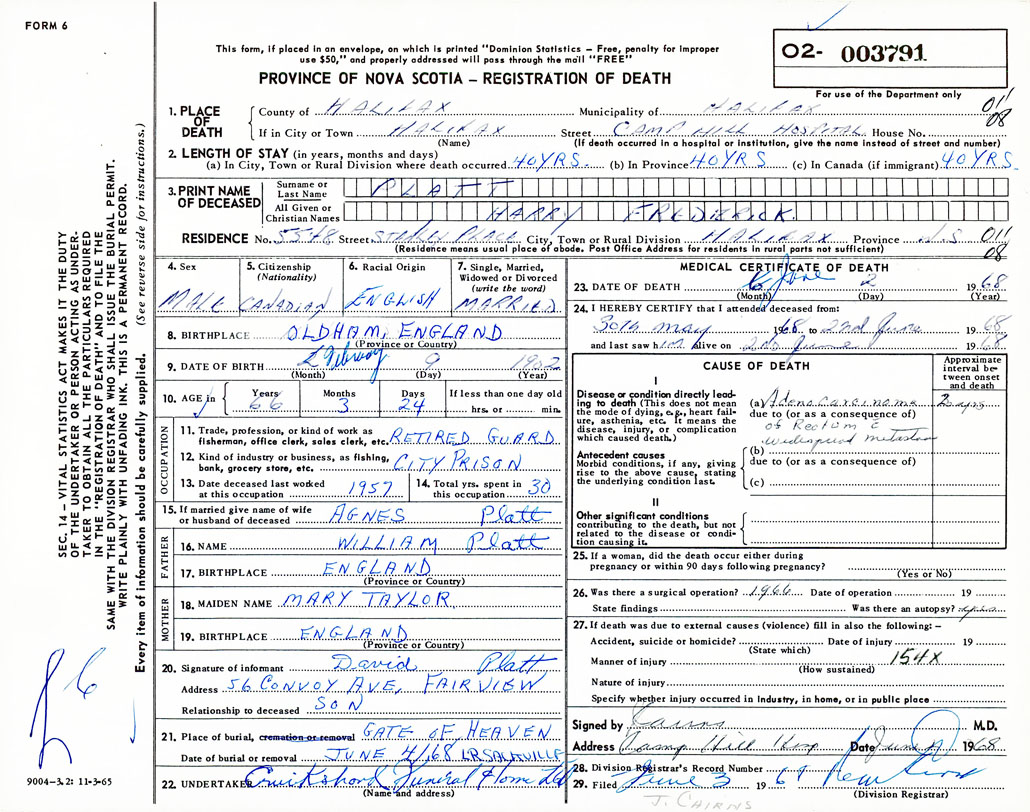 FORM 6
This form, if placed in an envelope, on which is printed "Dominion Statistics – Free, penalty for improper
use $50," and properly addressed will pass through the mail "FREE"
PROVINCE OF NOVA SCOTIA – REGISTRATION OF DEATH
02- 003791
For use of the Department only
1. PLACE OF DEATH
County of HALIFAX Municipality of HALIFAX 011
08
If in City or Town HALIFAX Street CAMP HILL HOSPITAL House No.
(Name) (If death occurred in a hospital or institution, give the name instead of street and number)
2. LENGTH OF STAY (in years, months and days)
(a) In City, Town or Rural Division where death occurred 40 YRS. (b) In Province 40 YRS (c) In Canada (if immigrant) 40 YRS.
3. PRINT NAME OF DECEASED
Surname or Last Name PLATT
All Given or Christian Names HARRY FREDERICK
RESIDENCE No. 5548 Street PLACE City, Town or Rural Division HALIFAX Province N.S 011
(Residence means usual place of abode. Post Office Address for residents in rural parts not sufficient) 08
4. Sex
MALE
5. Citizenship
(Nationality)
CANADIAN
6. Racial Origin
ENGLISH
7. Single, Married,
Widowed or Divorced
(write the word)
MARRIED
8. BIRTHPLACE OLDHAM, ENGLAND
(Province or Country)
9. DATE OF BIRTH 2 February 9 1902
(Month) (Day) (Year)
10. AGE in
Years Months Days If less than one day old
66 3 24 hrs. or min.
OCCUPATION
11. Trade, profession, or kind of work as
fisherman, office clerk, sales clerk, etc. RETIRED GUARD
12. Kind of industry or business, as fishing,
bank, grocery store, etc. CITY PRISON
13. Date deceased last worked
at this occupation 1957
14. Total yrs. spent in
this occupation 30
15. If married give name of wife
or husband of deceased AGNES Platt
FATHER
16. NAME WILLIAM Platt
17. BIRTHPLACE ENGLAND
(Province or Country)
MOTHER
18. MAIDEN NAME MARY TAYLOR
19. BIRTHPLACE ENGLAND
(Province or Country)
20. Signature of informant David Platt
Address 56 CONVOY AVE, FAIRVIEW
Relationship to deceased SON
21. Place of burial, cremation or removal GATE OF HEAVEN
Date of burial or removal JUNE 4/68 LR SACKVILLE
22. UNDERTAKER Cruikshank Funeral Home Ltd
(Name and address)
MEDICAL CERTIFICATE OF DEATH
23. DATE OF DEATH 6 June 2 1968
(Month) (Day) (Year)
24. I HEREBY CERTIFY that I attended deceased from:
30th May 1968 to 2nd June 1968
and last saw him alive on 2nd June 1968
CAUSE OF DEATH
Approximate
interval be-
tween onset
and death
I
Disease or condition directly lead-
ing to death (This does not mean
the mode of dying, e.g., heart fail-
ure, asthenia, etc. It means the
disease, injury, or complication
which caused death.)
(a) Adenocarcinoma
due to (or as a consequence of)
of Rectum c
widespread metastases
Antecedent causes
Morbid conditions, if any, giving
rise to the above cause, stating
the underlying condition last.
(b)
due to (or as a consequence of)
(c)
II
Other significant conditions
contributing to the death, but not
related to the disease or condi-
tion causing it.
25. If a woman, did the death occur either during
pregnancy or within 90 days following pregnancy?
(Yes or No)
26. Was there a surgical operation? 1966 Date of operation 19
State findings Was there an autopsy?
27. If death was due to external causes (violence) fill in also the following: –
Accident, suicide or homicide? Date of injury 19
(State which)
Manner of injury 154X
(How sustained)
Nature of injury
Specify whether injury occurred in Industry, in home, or in public place
Signed by Cairns M.D.
Address Camp Hill Hosp Date June 1968
28. Division Registrar's Record Number
29. Filed June 3 19
(Division Registrar)
J. CAIRNS
SEC. 14 – VITAL STATISTICS ACT MAKES IT THE DUTY
OF THE UNDERTAKER OR PERSON ACTING AS UNDER-
TAKER TO OBTAIN ALL THE PARTICULARS REQUIRED
IN THE "REGISTRATION OF DEATH" AND TO FILE THE
SAME WITH THE DIVISION REGISTRAR WHO SHALL ISSUE THE BURIAL PERMIT.
WRITE PLAINLY WITH UNFADING INK. THIS IS A PERMANENT RECORD.
Every item of information should be carefully supplied. (See reverse side for instructions.)
9004-3.2: 11-3-65